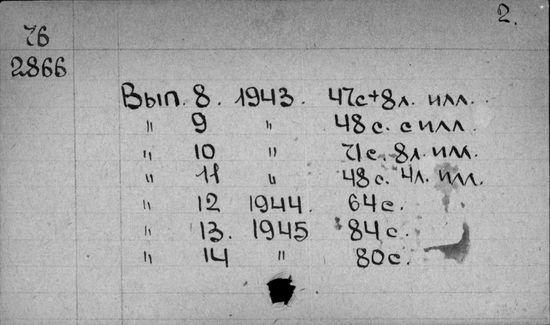 2.
76
2866
Вып. 8. 1943. 47с+8л. илл.
" 9 " 48 с. с илл.
" 10 " 71 с. 8л. илл.
" 11 " 48с. 4л. илл.
" 12 1944. 64с.
" 13. 1945 84с.
" 14 " 80с.